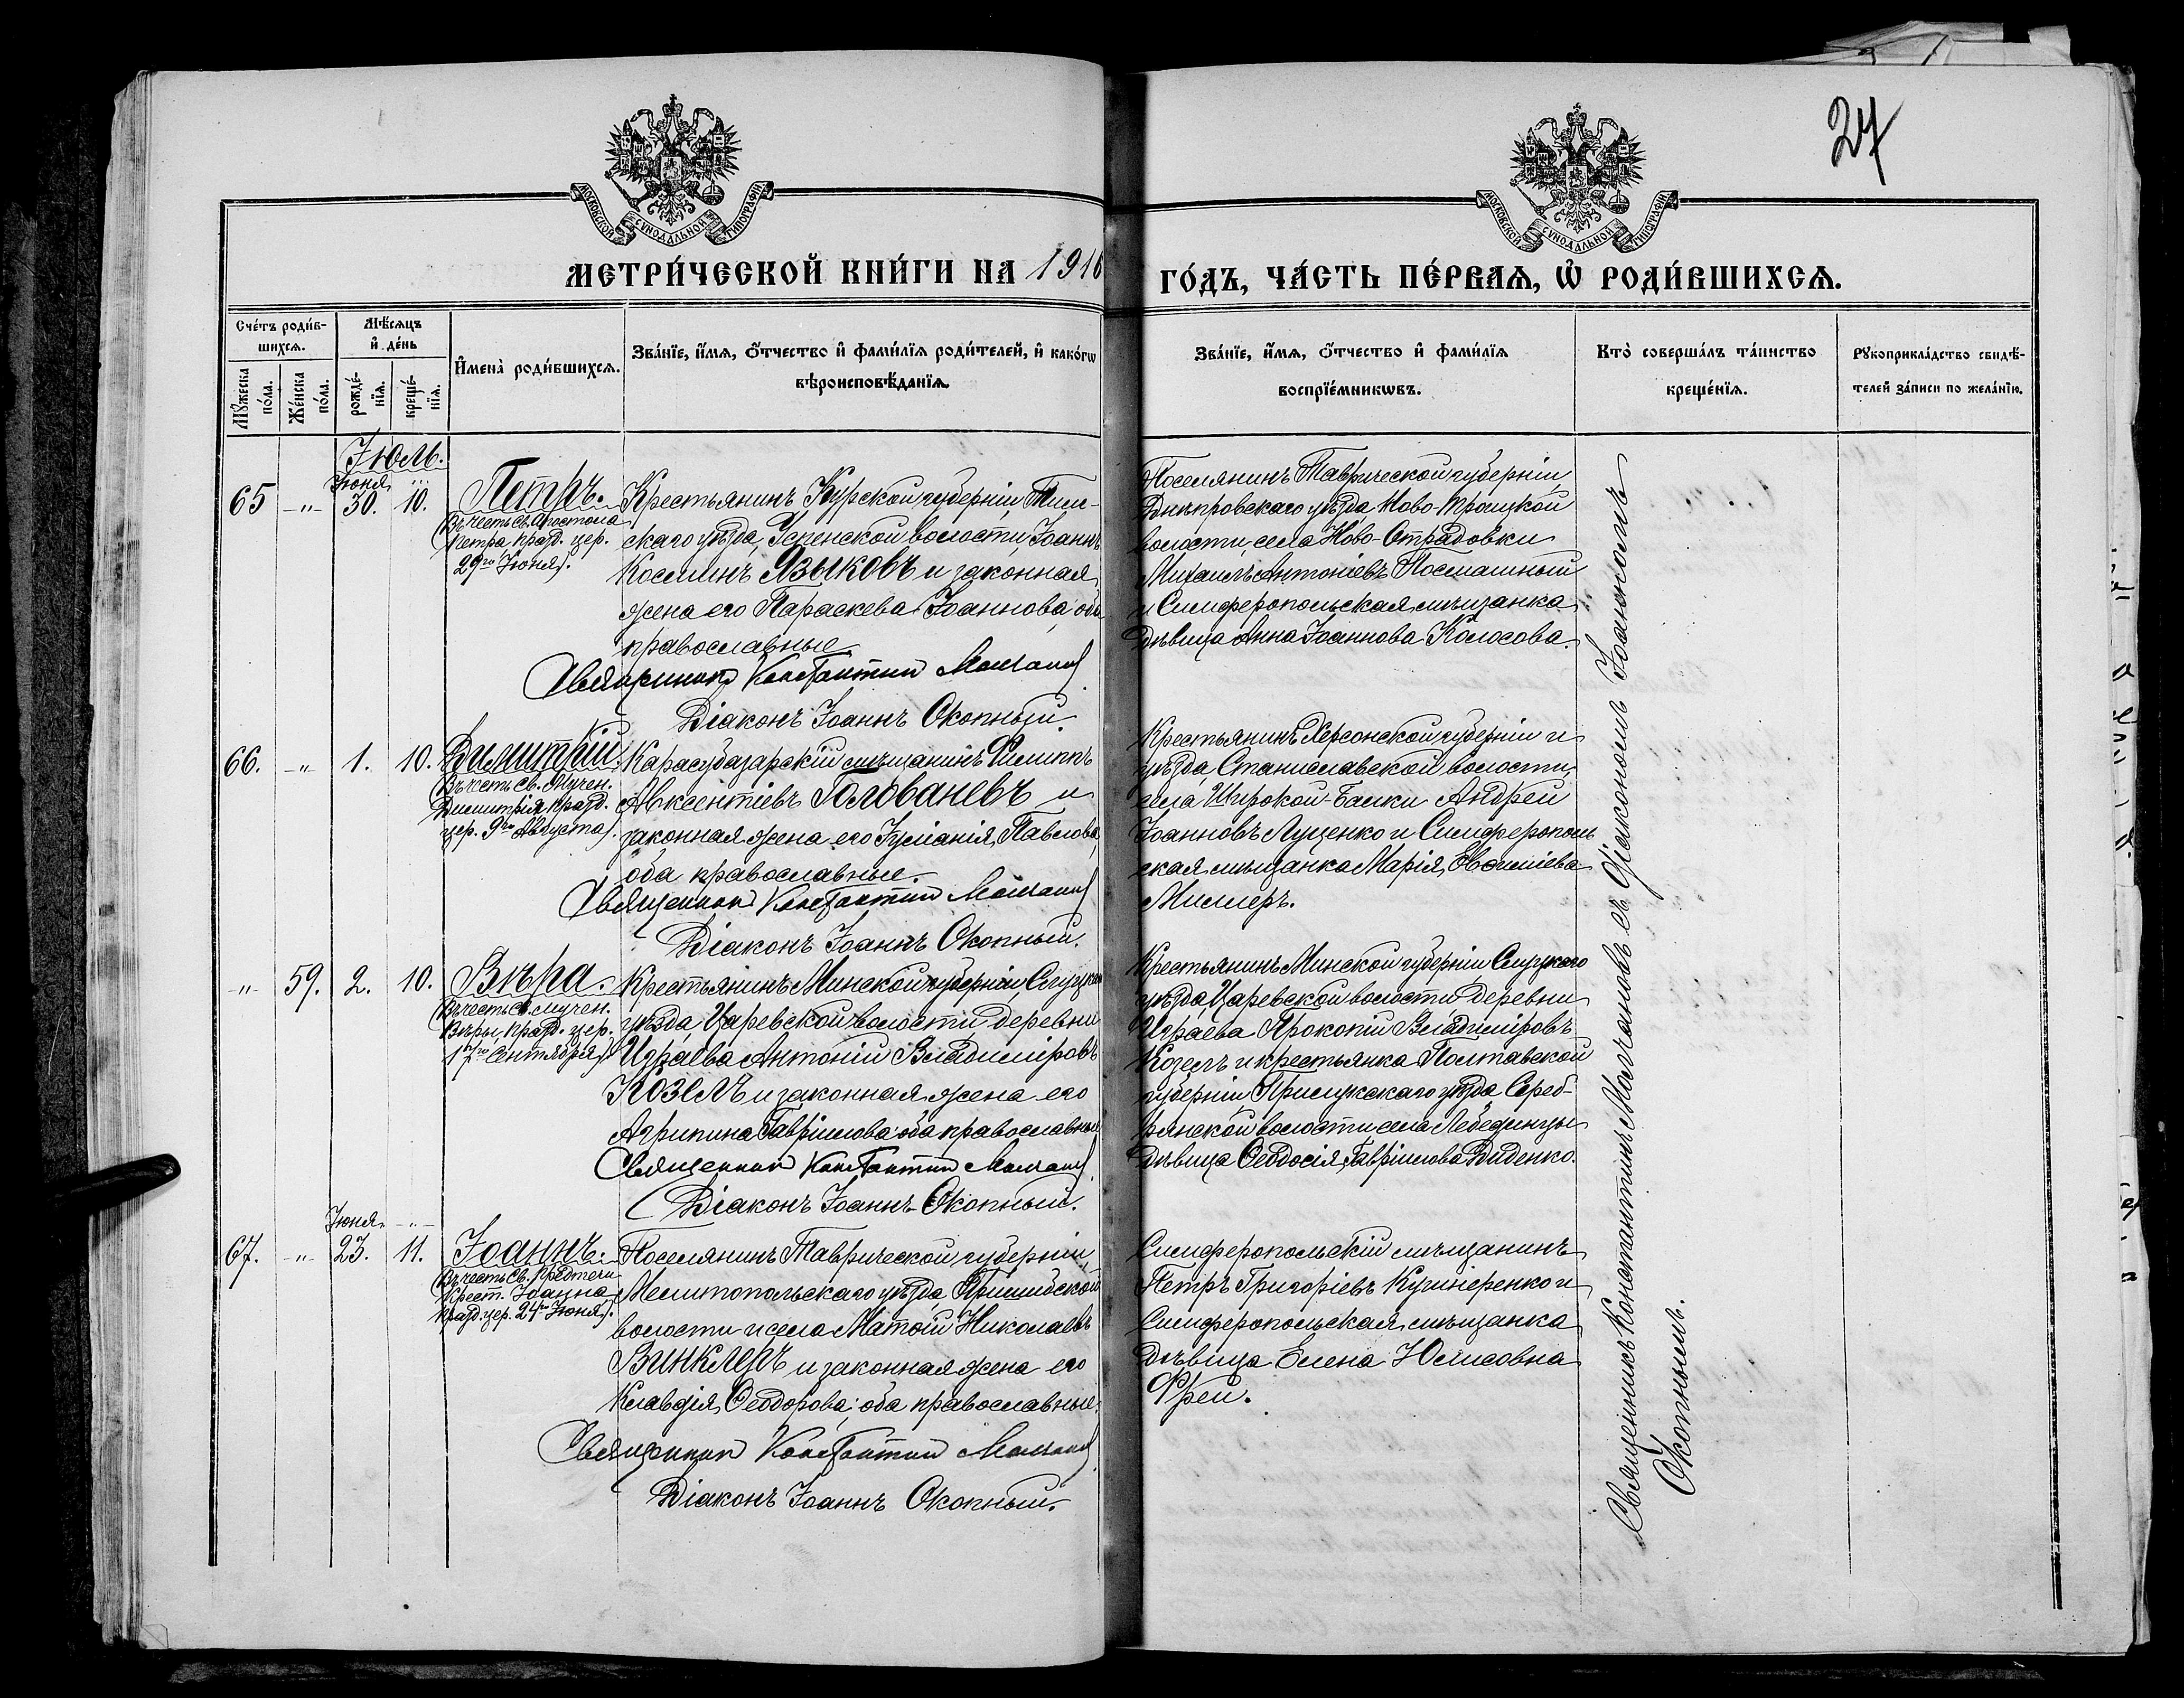 27
МОСКОВСКОЙ СѴНОДАЛЬНОЙ ТИПОГРАФІИ
МОСКОВСКОЙ СѴНОДАЛЬНОЙ ТИПОГРАФІИ
МЕТРИ́ЧЕСКОЙ КНИ́ГИ НА 1916
ГО́ДЪ, ЧА́СТЬ ПЕ́РВАѦ, Ѡ҆ РОДИ́ВШИХСѦ.
Сче́тъ роди́в-
шихсѧ.
Мѣ́сѧцъ
и҆ де́нь
Мꙋ́жеска по́ла.
Же́нска по́ла.
рожде́-нїѧ.
креще́-нїѧ.
И҆мена̀ роди́вшихсѧ.
Зва́нїе, и҆́мѧ, о҆́тчество и҆ фами́лїѧ роди́телей, и҆ како́гѡ
вѣроисповѣ́данїѧ.
Зва́нїе, и҆́мѧ, о҆́тчество и҆ фами́лїѧ
воспрїе́мникѡвъ.
Кто̀ соверша́лъ та́инство
креще́нїѧ.
Рꙋкоприкла́дство свидѣ́-
телей за́писи по жела́нїю.
Іюль.
Іюня
65 -„- 30. 10.
Петръ.
Въ честь Св. Апостола
Петра празд. цер.
29го Іюня).
Крестьянинъ Курской губерніи, Тим-
скаго уѣзда, Успенской волости, Іоаннъ
Косминъ Языковъ и законная
жена его Параскева Іоаннова; оба
православные
Священникъ Константинъ Молчановъ
Діаконъ Іоаннъ Окопный
Поселянинъ Таврической губерніи,
Днѣпровскаго уѣзда Ново-Троицкой
волости, села Ново-Отрадовки
Михаилъ Антоніевъ Посмашный
и Симферопольская мѣщанка
дѣвица Анна Іоаннова Колосова.
66. -„- 1. 10.
Димитрій.
Въ честь Св. Мучен.
Димитрія празд.
цер. 9го Августа).
Карасубазарскій мѣщанинъ Филиппъ
Авксентіевъ Голованевъ и
законная жена его Іуліанія Павлова,
оба православные
Священникъ Константинъ Молчановъ
Діаконъ Іоаннъ Окопный.
Крестьянинъ Херсонской губерніи и
уѣзда, Станиславской волости,
села Широкой-Балки Андрей
Іоанновъ Луценко и Симферополь
ская мѣщанка Марія
Миллеръ.
-„- 59. 2. 10.
Вѣра.
Въ честь Св. мучен.
Вѣры, празд. цер.
17го Сентября).
Крестьянинъ Минской губерніи, Слуцкаго
уѣзда, Царевской волости деревни
Израева Антоній Владиміровъ
Козелъ и законная жена его
Агрипина Гавріилова оба православные
Священникъ Константинъ Молчановъ
Діаконъ Іоаннъ Окопный.
Крестьянинъ Минской губерніи Слуцкаго
уѣзда, Царевской волости деревни
Израева Прокопій Владиміровъ
Козелъ и крестьянка Полтавской
губерніи Прилукскаго уѣзда Сереб-
рянской волости села Лебединцы
дѣвица Ѳеодосія Гавріилова Диденко.
Іюня -„-
67. -„- 23. 11.
Іоаннъ.
Въ честь Св. Предтечи
Крест. Іоанна
празд. цер. 24го Іюня).
Поселянинъ Таврической губерніи,
Мелитопольскаго уѣзда Пришибской
волости и села Матѳій Николаевъ
Винклеръ и законная жена его
Клавдія Ѳеодорова; оба православные.
Священникъ Константинъ Молчановъ
Діаконъ Іоаннъ Окопный.
Симферопольскій мѣщанинъ
Петръ Григоріевъ Кушнеренко и
Симферопольская мѣщанка
дѣвица Елена Юлисовна
Фрей.
Священникъ Константинъ Молчановъ съ діакономъ Іоанномъ
Окопнымъ.